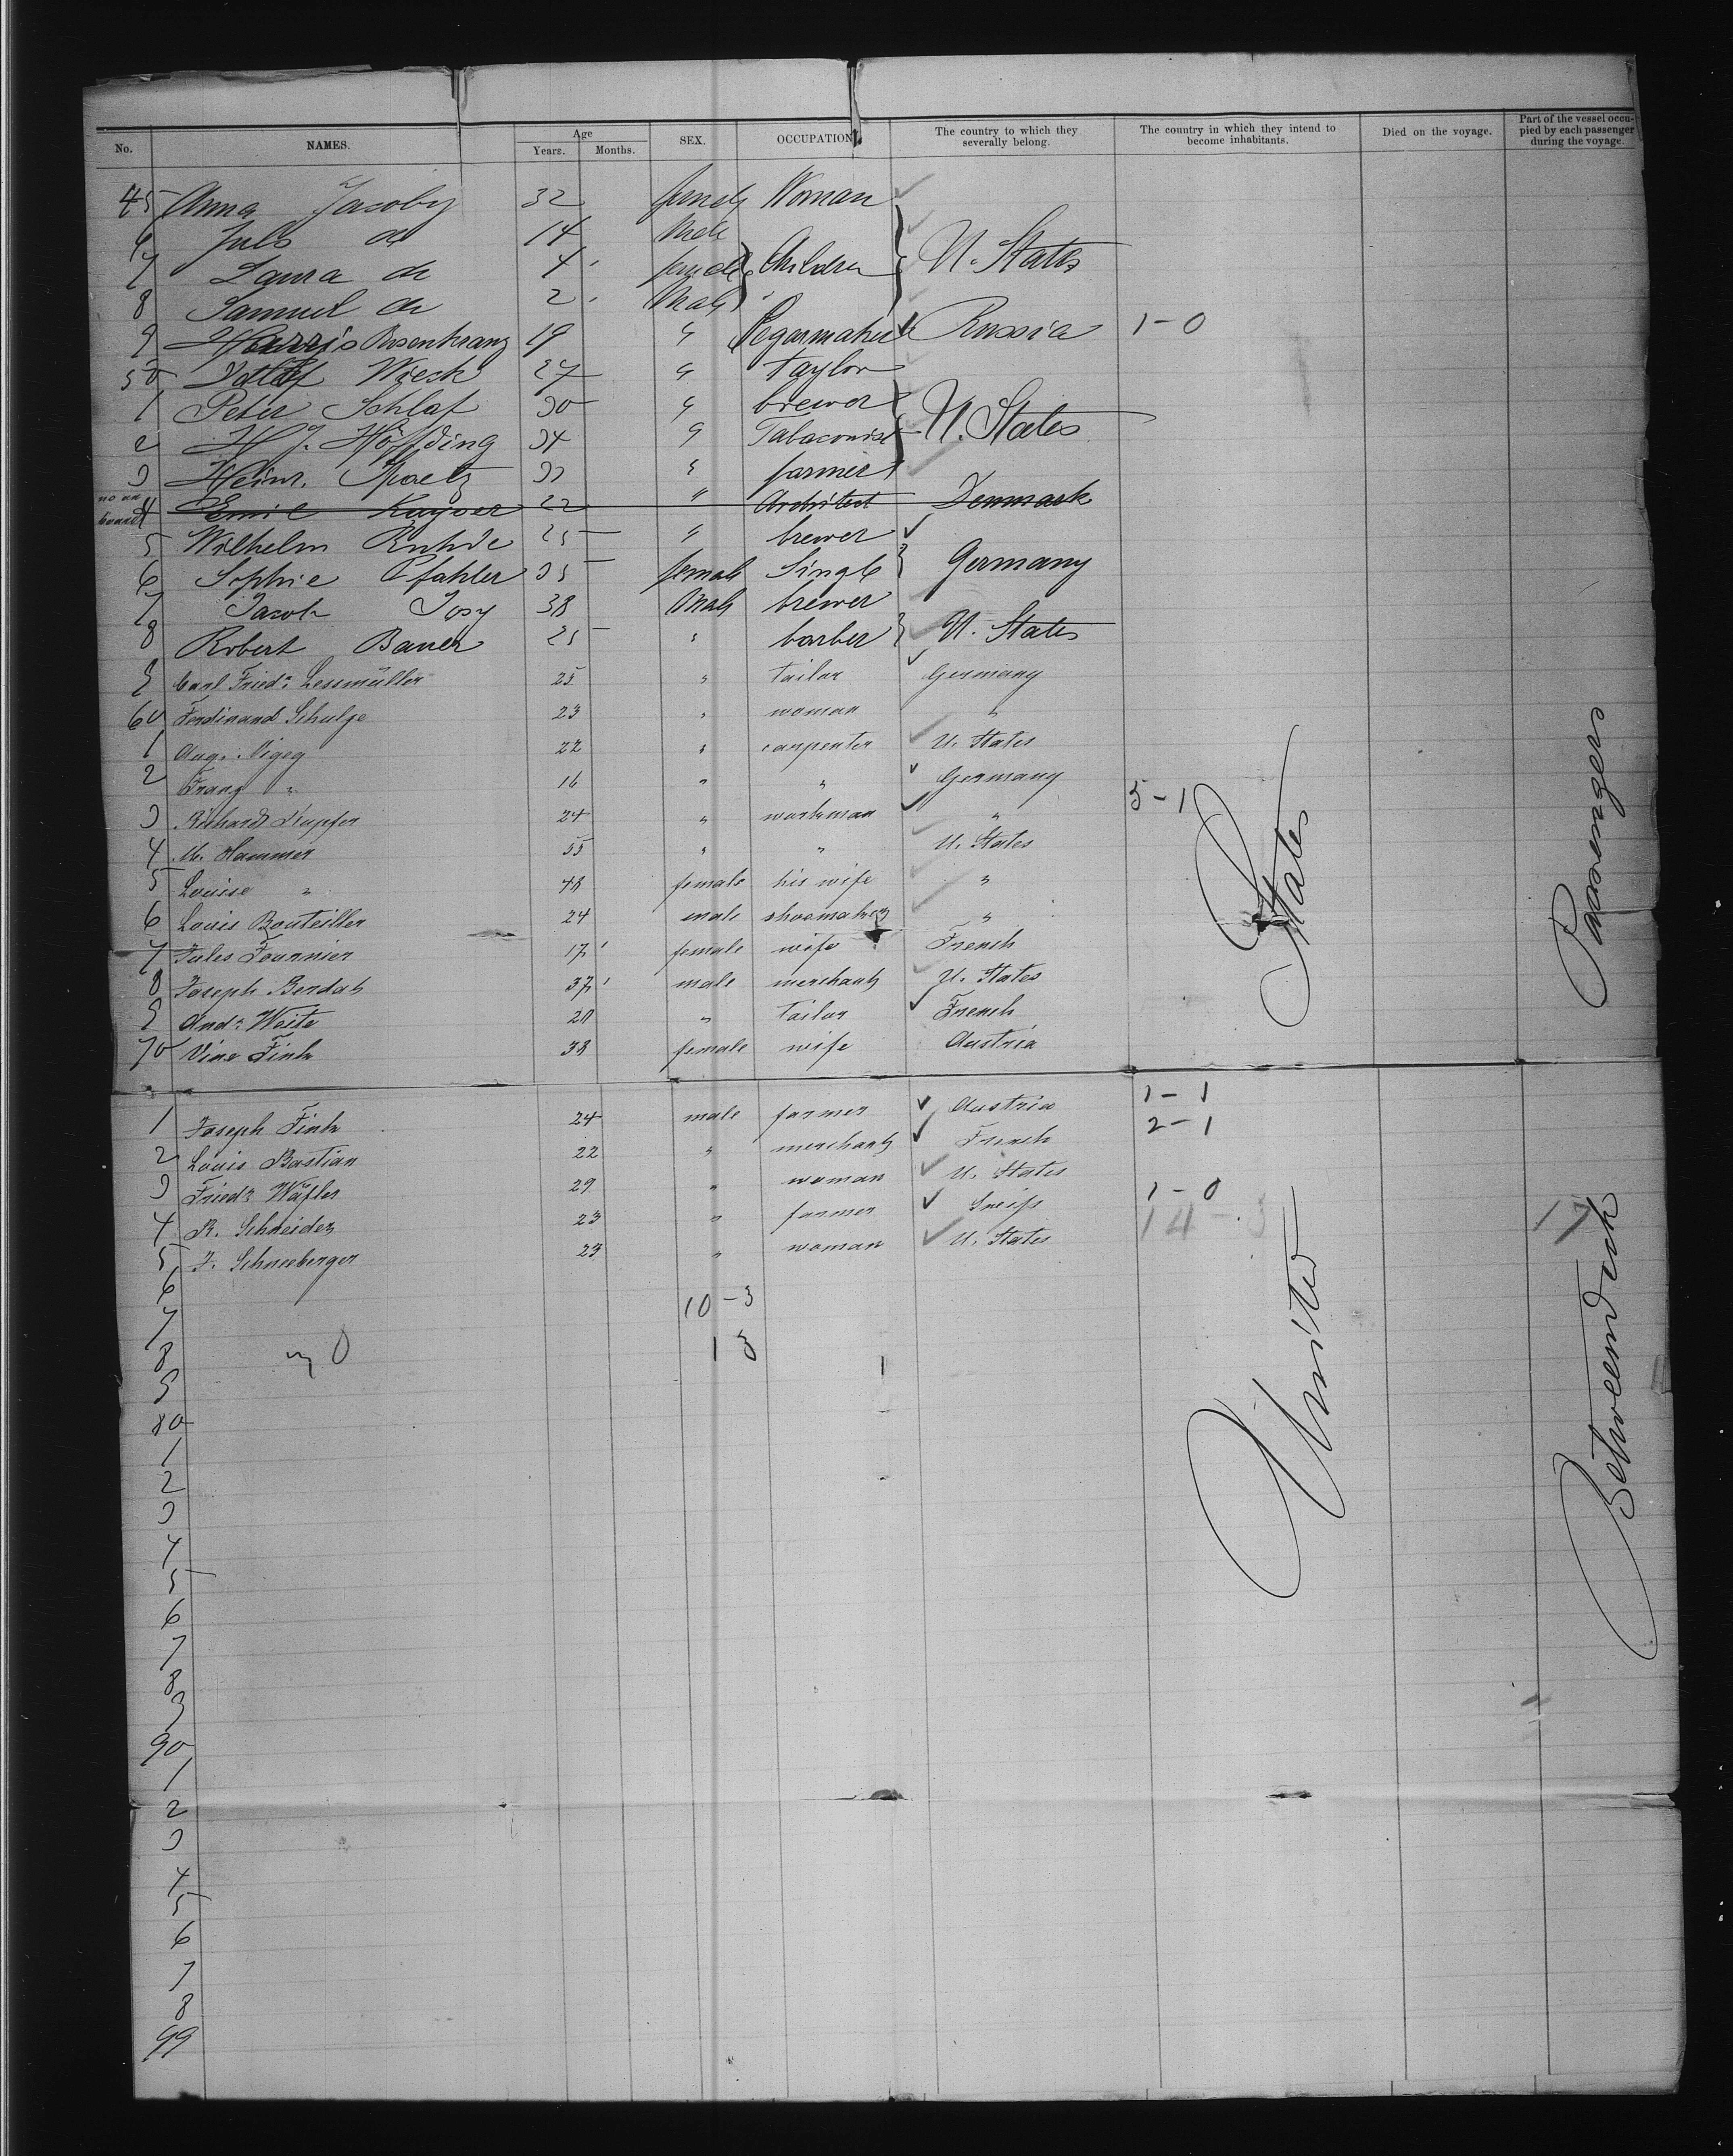 No. NAMES. Age Years. Months. SEX. OCCUPATION. The country to which they severally belong. The country in which they intend to become inhabitants. Died on the voyage. Part of the vessel occupied by each passenger during the voyage.
45 Anna Jacoby 32 female Woman
6 Juls do 14 Male
7 Laura do 4 female } Children } U. States
8 Samuel do 2 Male
9 Harris Rosenkranz 19 " Segarmaker Russia 1-0
50 Detlef Wieck 27 " taylor
1 Peter Schlaf 30 " brewer
2 H J. Höffding 34 " Tabaconist } U. States
3 Heinr. Spaetz 33 " farmer
no on board
4 Emil Kayser 22 " Architect Denmark
5 Wilhelm Ruhde 25 " brewer
6 Sophie Pfahler 35 female Single } Germany
7 Jacob Josy 38 Male brewer
8 Robert Bauer 25 " barber } U. States
9 Carl Friedr. Lessmüller 25 " tailor Germany
60 Ferdinand Schulze 23 " woman "
1 Aug. 22 " carpenter U. States
2 Franz " 16 " " Germany
3 Richard Kupfer 24 " workman " 5-1
4 M. Hammer 55 " " U. States
5 Louise " 48 female his wife "
6 Louis Bouteiller 24 male shoemaker "
7 Jules Fournier 17 female wife French
8 Joseph Berdat 37 male merchant U. States
9 Andr. Waite 20 " Tailor French
70 Vine Fink 38 female wife Austria
1 Joseph Fink 24 male farmer Austria 1-1
2 Louis Bastian 22 " merchant French 2-1
3 Friedr. Wäfler 29 " woman U. States
4 R. Schneider 23 " farmer Sweiss 1-0
5 F. Schneeberger 23 " woman U. States 14-3 17
6
7 10-3
8 1 3
9
80
1
2
3
4
5
6
7
8
9
90
1
2
3
4
5
6
7
8
99
United States
Betweendeck Passengers